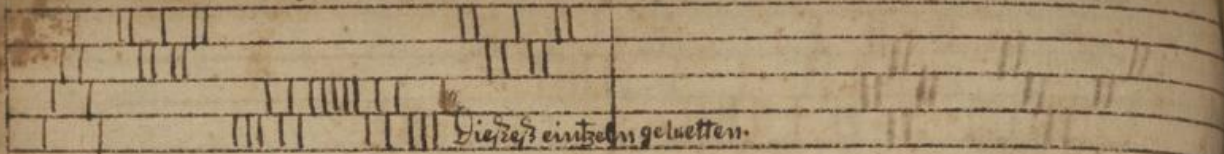 Dießeß eintzeln geluetten.